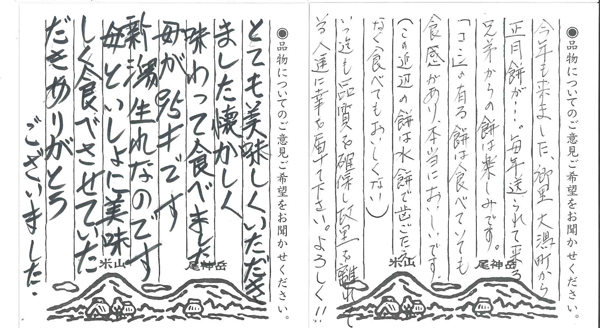 ●品物についてのご意見ご希望をお聞かせください。
今年も来ました、郷里 大潟町から
正月餅が…。毎年送られて来る
兄弟からの餅は楽しみです。
「コシ」の有る餅は食べていても
食感があり、本当においしいです。
(この近辺の餅は水餅で歯ごたえ
なく食べてもおいしくない)
いつ迄も品質を確保し故里を離れて
る人達に幸を届て下さい。よろしく!!
米山
尾神岳
●品物についてのご意見ご希望をお聞かせください。
とても美味しくいただき
ました懐かしく
味わって食べました
母が95才です
新潟生れなのです
母といっしょに美味
しく食べさせていた
だきありがとう
ございました。
米山
尾神岳